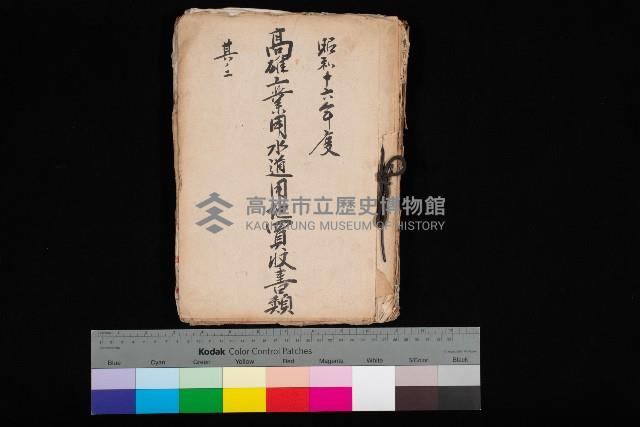 昭和十六年度
高雄工業用水道用地買收書類
其ノ二
高雄市立歷史博物館
KAOHSIUNG MUSEUM OF HISTORY
Kodak Color Control Patches
Blue Cyan Green Yellow Red Magenta White 3/Color Black